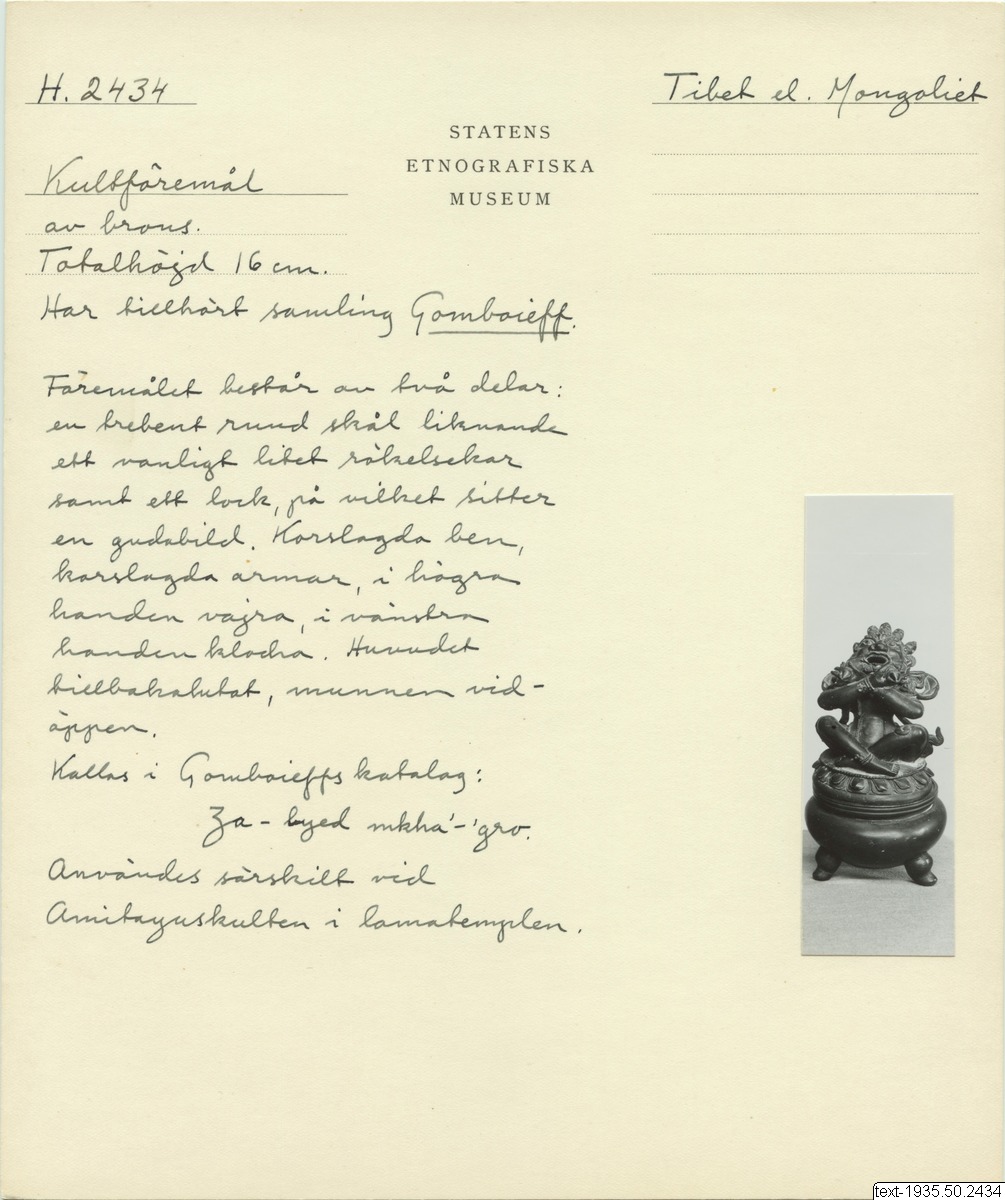 H. 2434
Tibet el. Mongoliet
STATENS
ETNOGRAFISKA
MUSEUM
Kultföremål
av brons.
Totalhöjd 16 cm.
Har tillhört samling Gomboieff.
Föremålet består av två delar:
en trebent rund skål liknande
ett vanligt litet rökelsekar
samt ett lock, på vilket sitter
en gudabild. Korslagda ben,
korslagda armar, i högra
handen vajra, i vänstra
handen klocka. Huvudet
tillbakalutat, munnen vid-
öppen.
Kallas i Gomboieffs katalog:
Za-byed mkha'-'gro.
Användes särskilt vid
Amitayuskulten i lamatemplen.
text-1935.50.2434